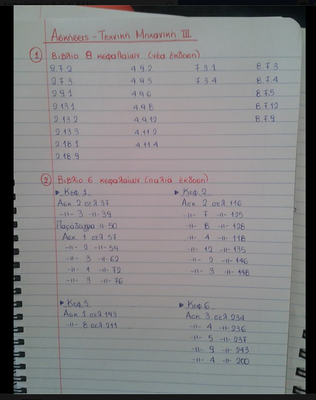 Ασκήσεις - Τεχνική Μηχανική III
① Βιβλίο 8 κεφαλαίων (νέα έκδοση)
2.7.2 4.9.2 7.3.1 8.7.3
2.7.3 4.9.5 7.3.4 8.7.4
2.9.1 4.9.6 8.7.5
2.13.1 4.9.8 8.7.12
2.13.2 4.9.12 8.7.9
2.13.3 4.11.2
2.18.1 4.11.4
2.18.9
② Βιβλίο 6 κεφαλαίων (παλιά έκδοση)
► Κεφ. 1 ► Κεφ. 2
Ασκ. 2 σελ 37 Ασκ. 2 σελ 116
-||- 3 -||- 39 -||- 7 -||- 125
Παράδειγμα -||- 50 -||- 8 -||- 128
Ασκ. 1 σελ 57 -||- 4 -||- 118
-||- 2 -||- 59 -||- 12 -||- 135
-||- 3 -||- 62 -||- 2 -||- 146
-||- 1 -||- 72 -||- 3 -||- 148
-||- 3 -||- 76
► Κεφ. 5 ► Κεφ. 6
Ασκ. 1 σελ 193 Ασκ. 3 σελ 234
-||- 8 σελ 211 -||- 4 -||- 236
-||- 5 -||- 237
-||- 9 -||- 243
-||- 4 -||- 200